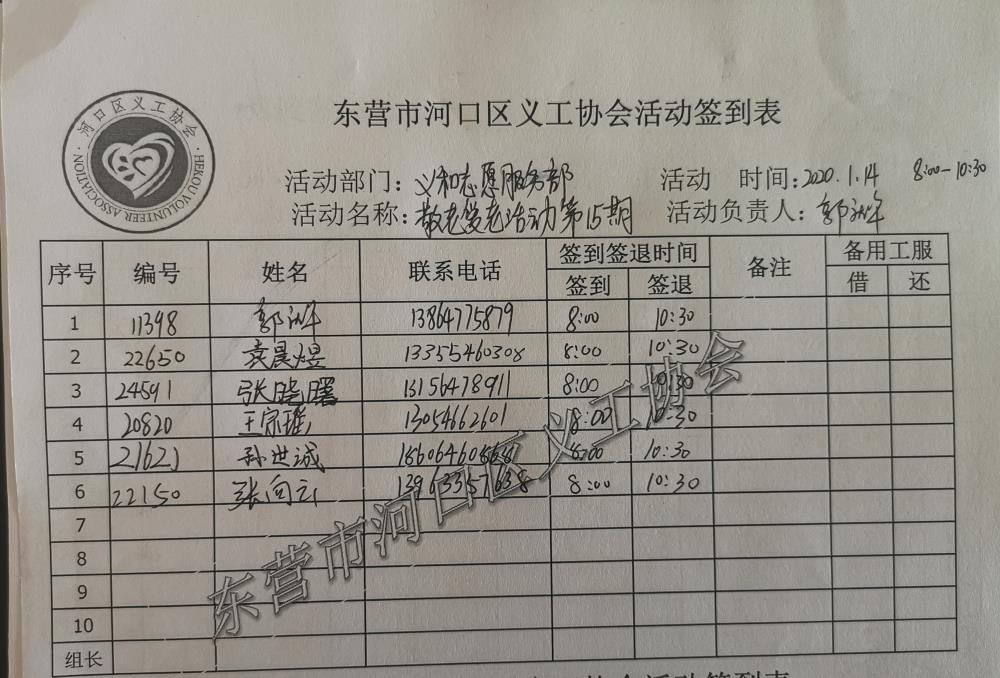 东营市河口区义工协会活动签到表
河口区义工协会
HEKOU VOLUNTEER ASSOCIATION
活动部门：义和志愿服务部 活动 时间：2020.1.14 8:00-10:30
活动名称：敬老爱老活动第15期 活动负责人：郭
序号 编号 姓名 联系电话 签到签退时间 备注 备用工服
签到 签退 借 还
1 11398 郭 13864775879 8:00 10:30
2 22650 袁晨煜 13355460308 8:00 10:30
3 24591 张晓曙 13156478911 8:00 10:30
4 20820 王宗瑶 13054662601 8:00 10:30
5 21621 孙世诚 8:00 10:30
6 22150 张向云 13963357638 8:00 10:30
7
8
9
10
组长
东营市河口区义工协会
协会活动签到表